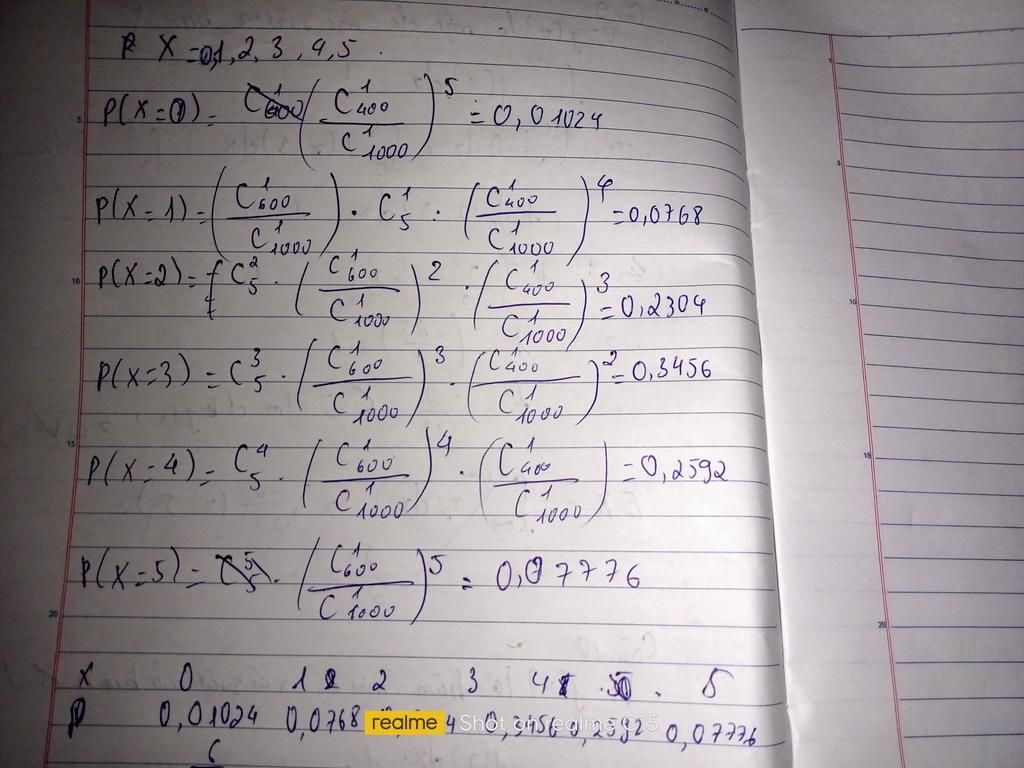 X = 0,1, 2, 3, 4, 5
P(X=0) = (C¹₄₀₀/C¹₁₀₀₀)⁵ = 0,01024
P(X=1) = (C¹₆₀₀/C¹₁₀₀₀) · C¹₅ · (C¹₄₀₀/C¹₁₀₀₀)⁴ = 0,0768
P(X=2) = C²₅ · (C¹₆₀₀/C¹₁₀₀₀)² · (C¹₄₀₀/C¹₁₀₀₀)³ = 0,2304
P(X=3) = C³₅ · (C¹₆₀₀/C¹₁₀₀₀)³ · (C¹₄₀₀/C¹₁₀₀₀)² = 0,3456
P(X=4) = C⁴₅ · (C¹₆₀₀/C¹₁₀₀₀)⁴ · (C¹₄₀₀/C¹₁₀₀₀) = 0,2592
P(X=5) = (C¹₆₀₀/C¹₁₀₀₀)⁵ = 0,07776
X 0 1 2 3 4 5
P 0,01024 0,0768 0,3456 0,2592 0,07776
realme Shot on realme C15
6